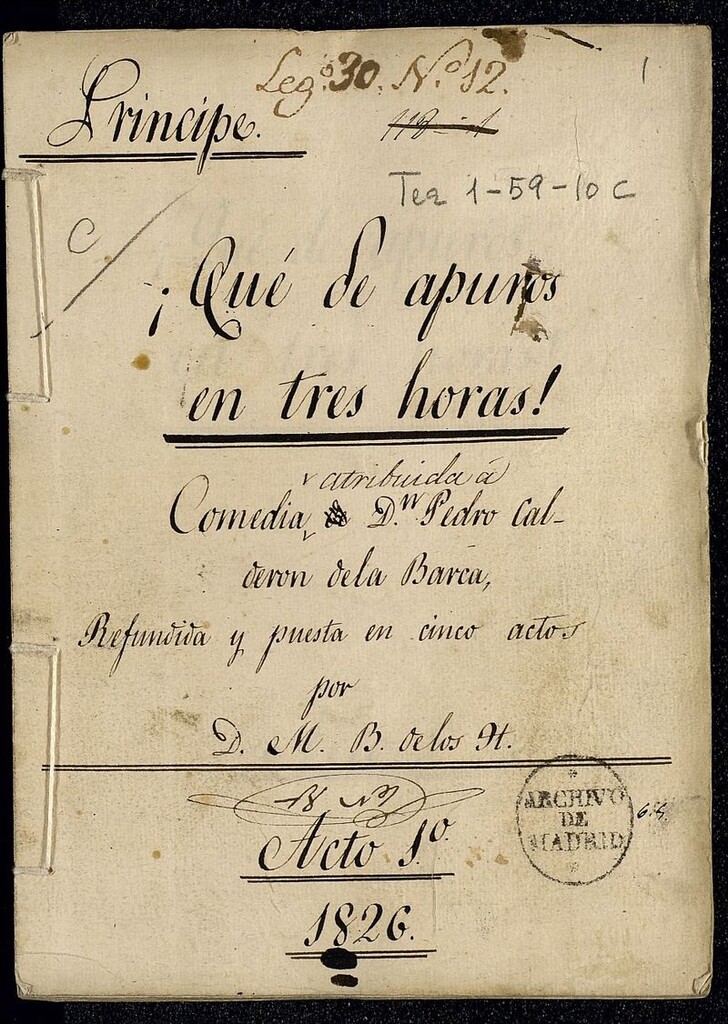 Leg.º 30. N.º 12.
1
Principe.
118-1
Tea 1-59-10 C
C
¡Qué de apuros
en tres horas!
atribuida á
Comedia D.ⁿ Pedro Cal-
deron dela Barca,
Refundida y puesta en cinco actos
por
D. M. B. delos H.
Acto 1.º
1826.
ARCHIVO
DE
MADRID